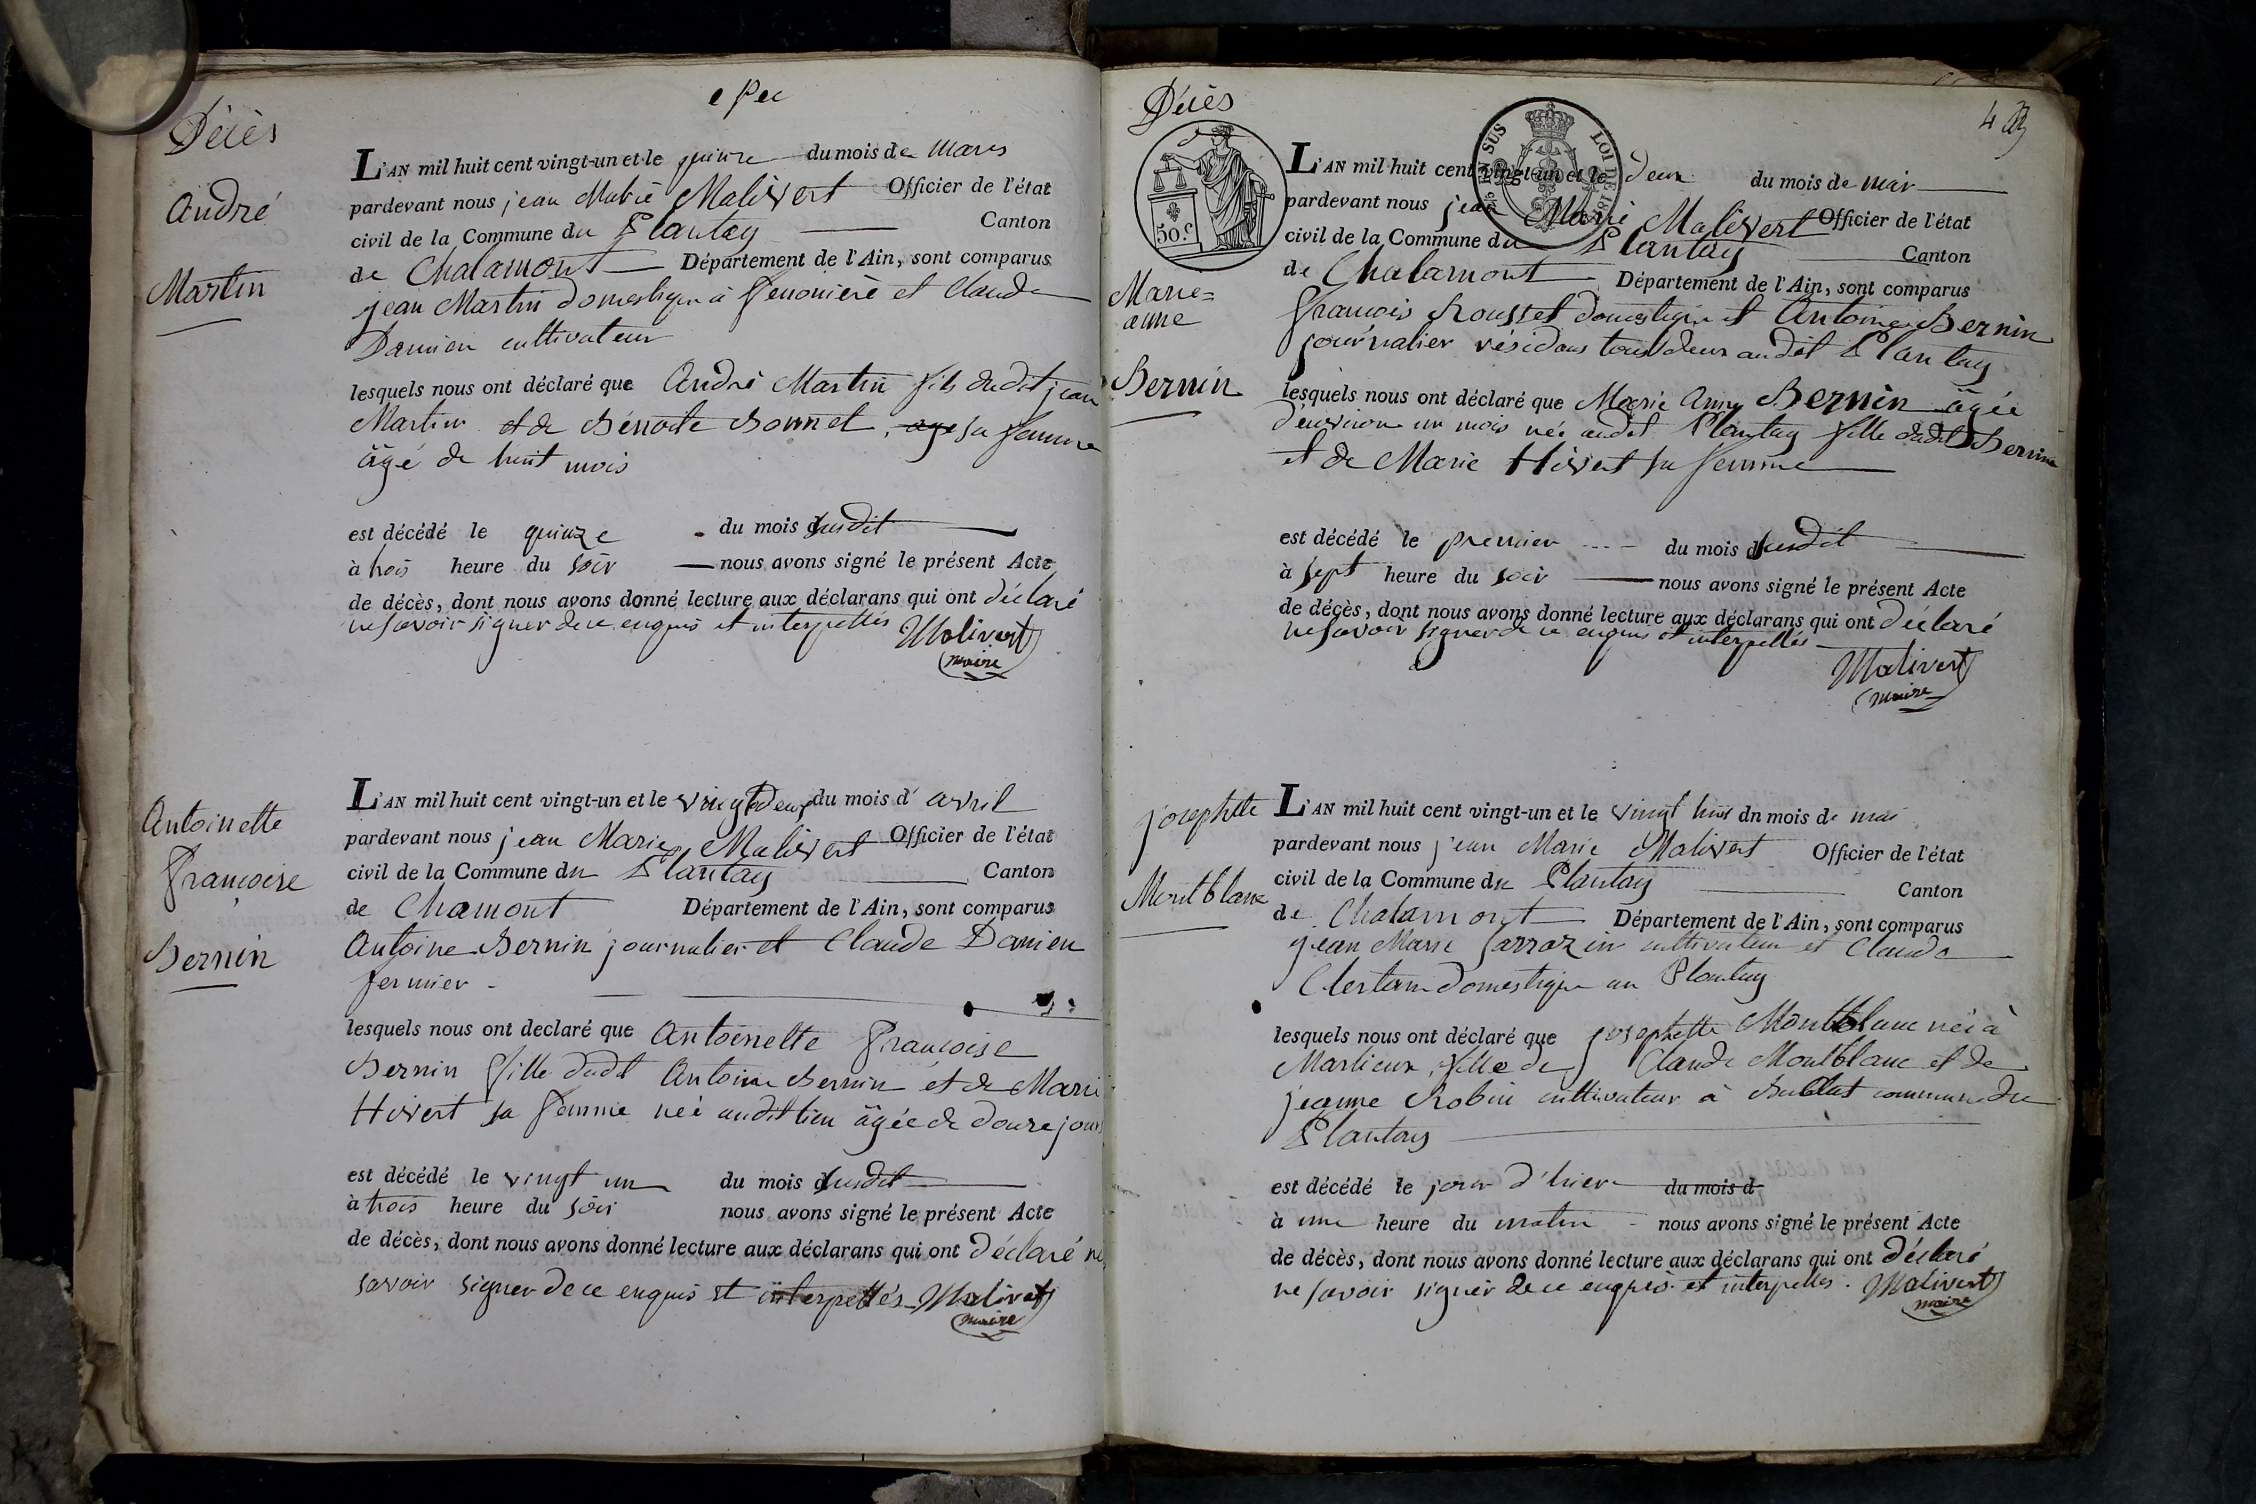 Décès
André
Martin
L'AN mil huit cent vingt-un et le quinze du mois de mars
pardevant nous jean Marie Malivert Officier de l'état
civil de la Commune du Plantay Canton
de Chalamont Département de l'Ain, sont comparus
jean Martin domestique à et Claude
Damien cultivateur
lesquels nous ont déclaré que André Martin fils dudit jean
Martin et de Bénoite Bonnet, age sa femme
âgé de huit mois
est décédé le quinze du mois dsusdit
à trois heure du soir nous avons signé le présent Acte
de décès, dont nous avons donné lecture aux déclarans qui ont déclaré
ne savoir signer de ce enquis et interpellés Malivert
maire
Antoinette
françoise
Bernin
L'AN mil huit cent vingt-un et le vingt deux du mois d' avril
pardevant nous jean Marie Malivert Officier de l'état
civil de la Commune du Plantay Canton
de Chamont Département de l'Ain, sont comparus
Antoine Bernin journalier et Claude Damien
fermier
lesquels nous ont declaré que Antoinette françoise
Bernin fille dudt Antoine Bernin et de Marie
Hivert sa femme neé audit lieu âgée de douze jours
est décédé le vingt un du mois dsusdit
à trois heure du soir nous avons signé le présent Acte
de décès, dont nous avons donné lecture aux déclarans qui ont déclaré ne
savoir signer de ce enquis et interpellés Malivert
maire
Décès
50.c
EN SUS
LOI DE
Marie=
anne
Bernin
L'AN mil huit cent vingt-un et le deux du mois de mai
pardevant nous jean Marie Malivert Officier de l'état
civil de la Commune du Plantay Canton
de Chalamont Département de l'Ain, sont comparus
françois Rousset domestique et Antoine Bernin
journalier résidans tous deux audit Plantay
lesquels nous ont déclaré que Marie Anne Bernin âgée
d'environ un mois née audit Plantay fille dudit Bernin
et de Marie Hivert sa femme
est décédé le premier du mois dsusdit
à sept heure du soir nous avons signé le présent Acte
de décès, dont nous avons donné lecture aux déclarans qui ont déclaré
ne savoir signer de ce enquis et interpellés
Malivert
maire
josephtte
Montblanc
L'AN mil huit cent vingt-un et le vingt huit dn mois de mai
pardevant nous jean Marie Malivert Officier de l'état
civil de la Commune du Plantay Canton
de Chalamont Département de l'Ain, sont comparus
jean Marie Sarrazin cultivateur et Claude
domestique au Plantay
lesquels nous ont déclaré que josephtte Montblanc neé à
Marlieux, fille de Claude Montblanc et de
jeanne Robin cultivateur à commune du
Plantay
est décédé le jour d'hier du mois d
à une heure du matin nous avons signé le présent Acte
de décès, dont nous avons donné lecture aux déclarans qui ont déclaré
ne savoir signer de ce enquis et interpellés. Malivert
maire